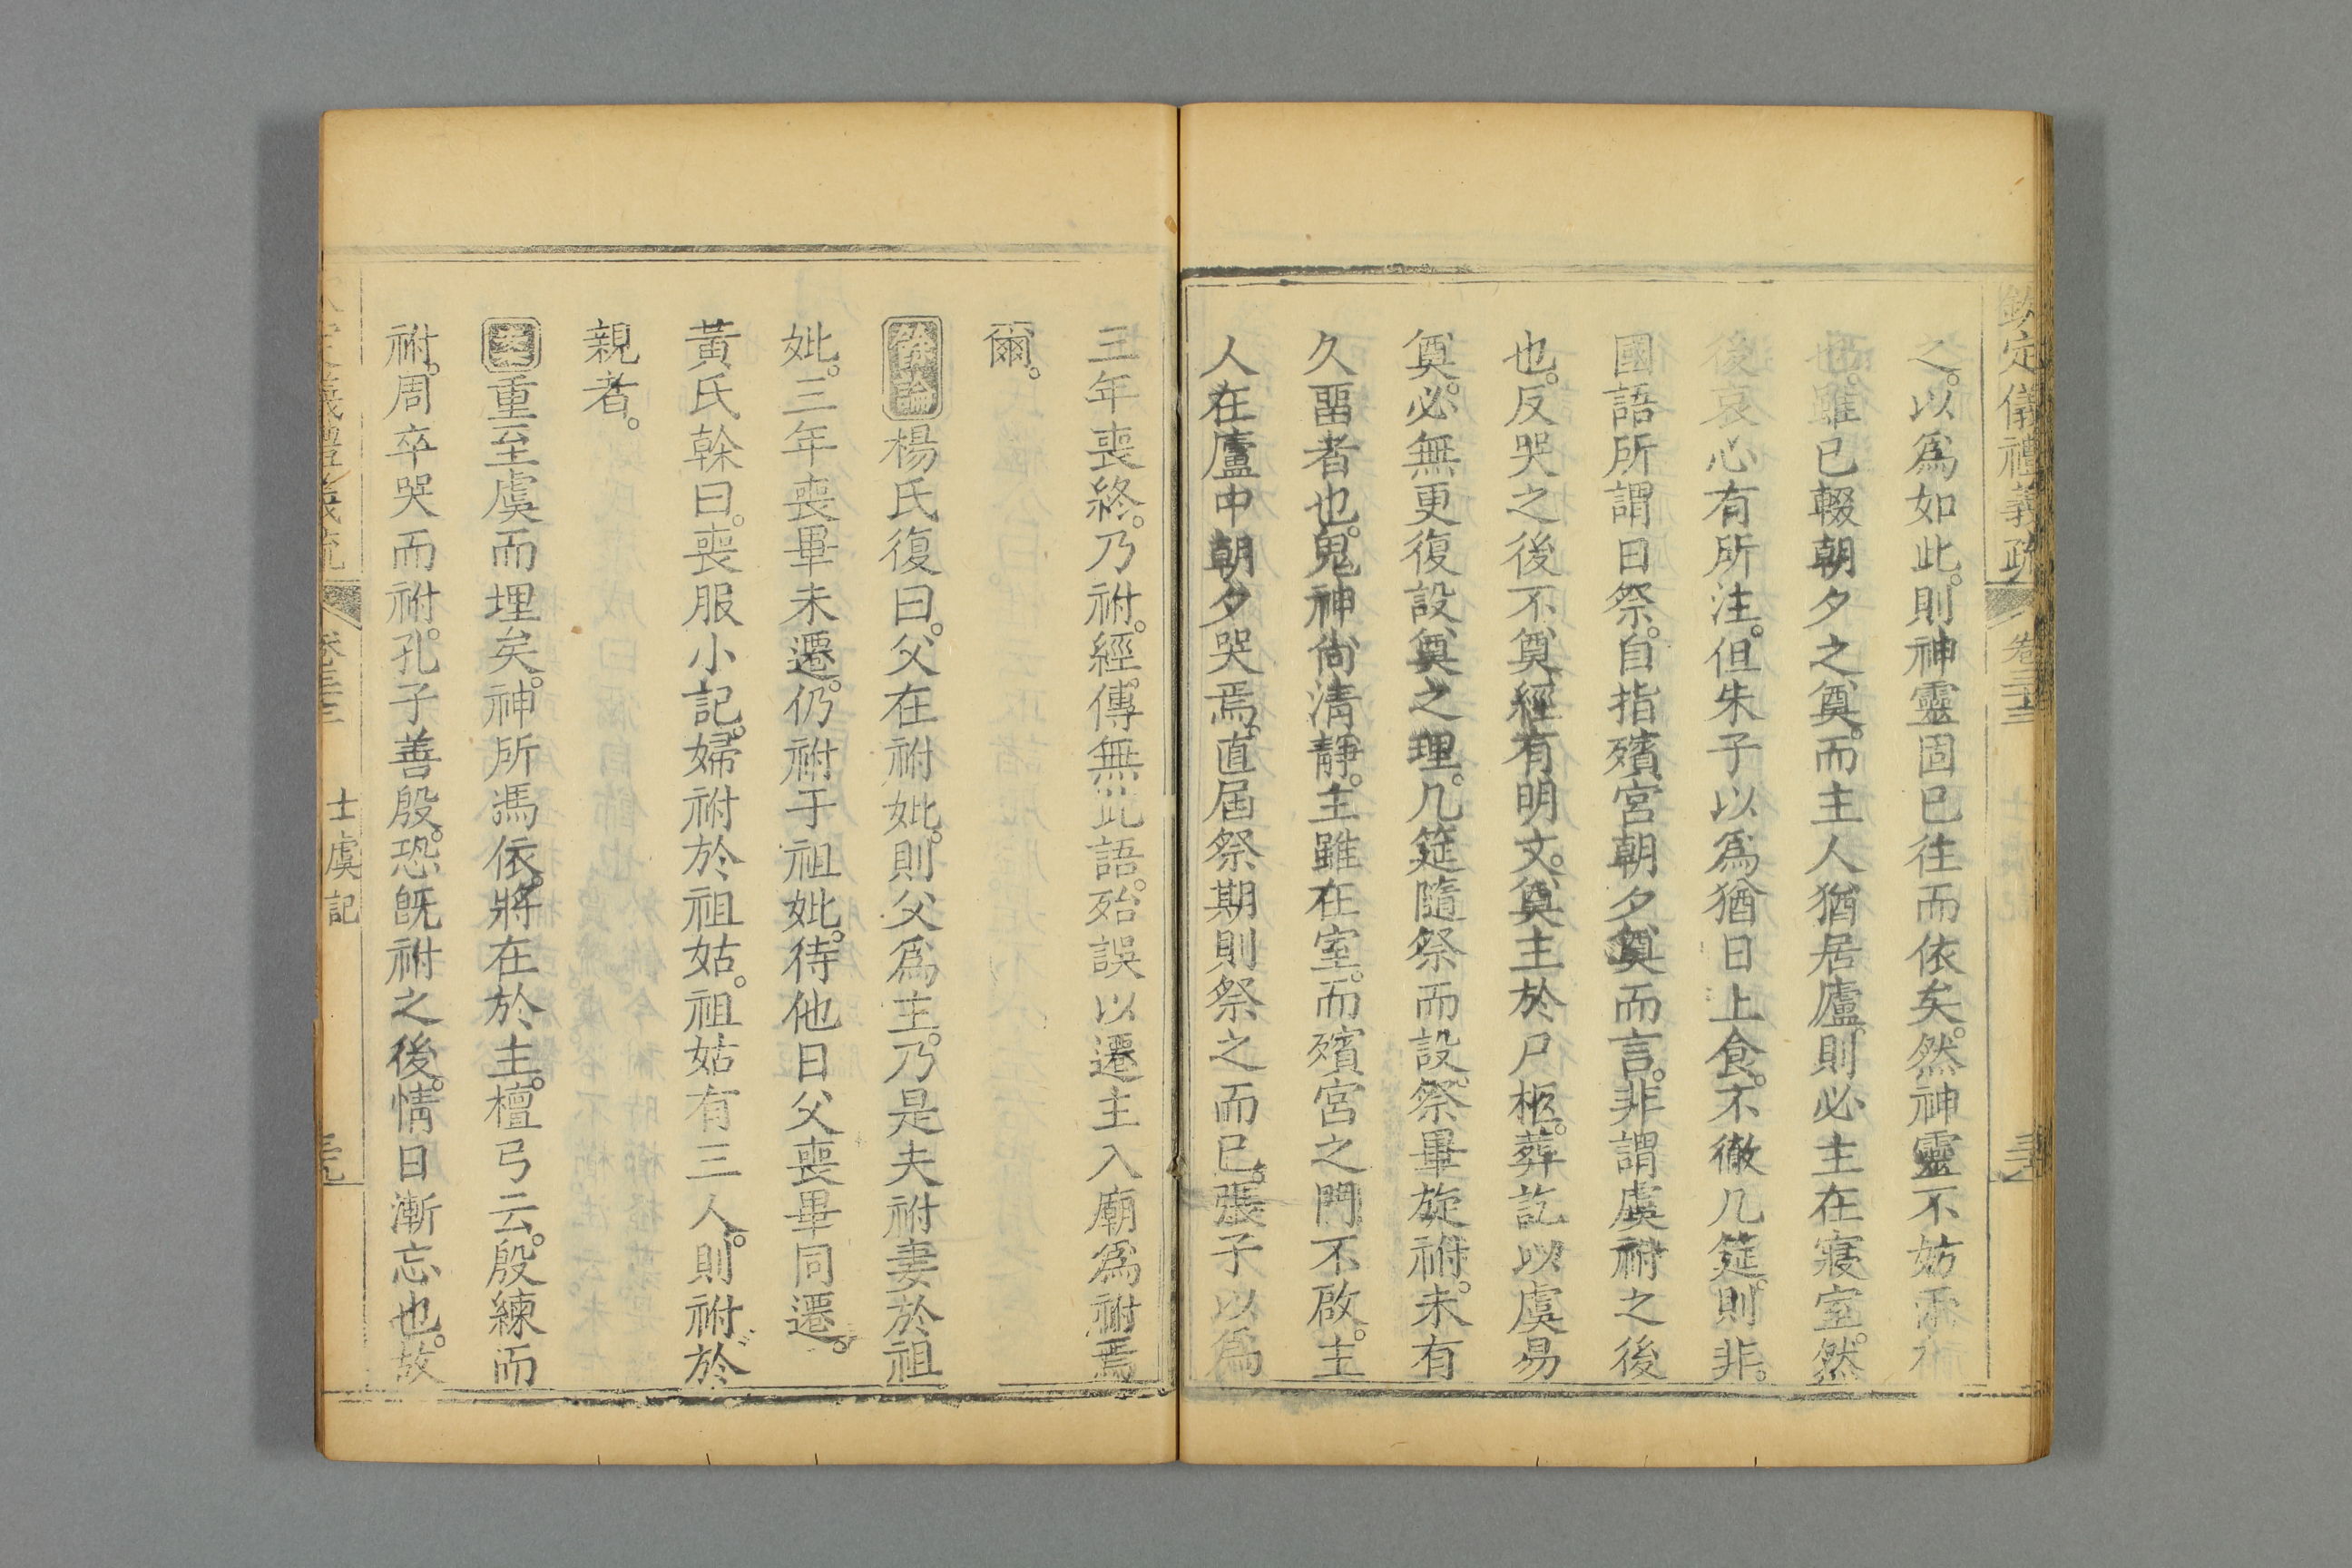 欽定儀禮義疏 卷三十三
之。以為如此。則神靈固已往而依矣。然神靈不妨
也。雖已輟朝夕之奠。而主人猶居廬。則必主在寢室。然
後哀心有所注。但朱子以為猶日上食。不徹几筵。則非。
國語所謂日祭。自指殯宮朝夕奠而言。非謂虞祔之後
也。反哭之後不奠。經有明文。奠主於尸柩。葬訖以虞易
奠。必無更復設奠之理。几筵隨祭而設。祭畢旋祔。未有
久畱者也。鬼神尚清靜。主雖在室。而殯宮之門不啟。主
人在廬中朝夕哭焉。直屆祭期則祭之而已。張子以為
三年喪終。乃祔。經傳無此語。殆誤以遷主入廟為祔焉
爾。
餘論楊氏復曰。父在祔妣。則父為主。乃是夫祔妻於祖
妣。三年喪畢未遷。仍祔于祖妣。待他日父喪畢同遷。
黃氏榦曰。喪服小記。婦祔於祖姑。祖姑有三人。則祔於
親者。
案重至虞而埋矣。神所馮依。將在於主。檀弓云。殷練而
祔。周卒哭而祔。孔子善殷。恐旣祔之後。情日漸忘也。故
士虞記